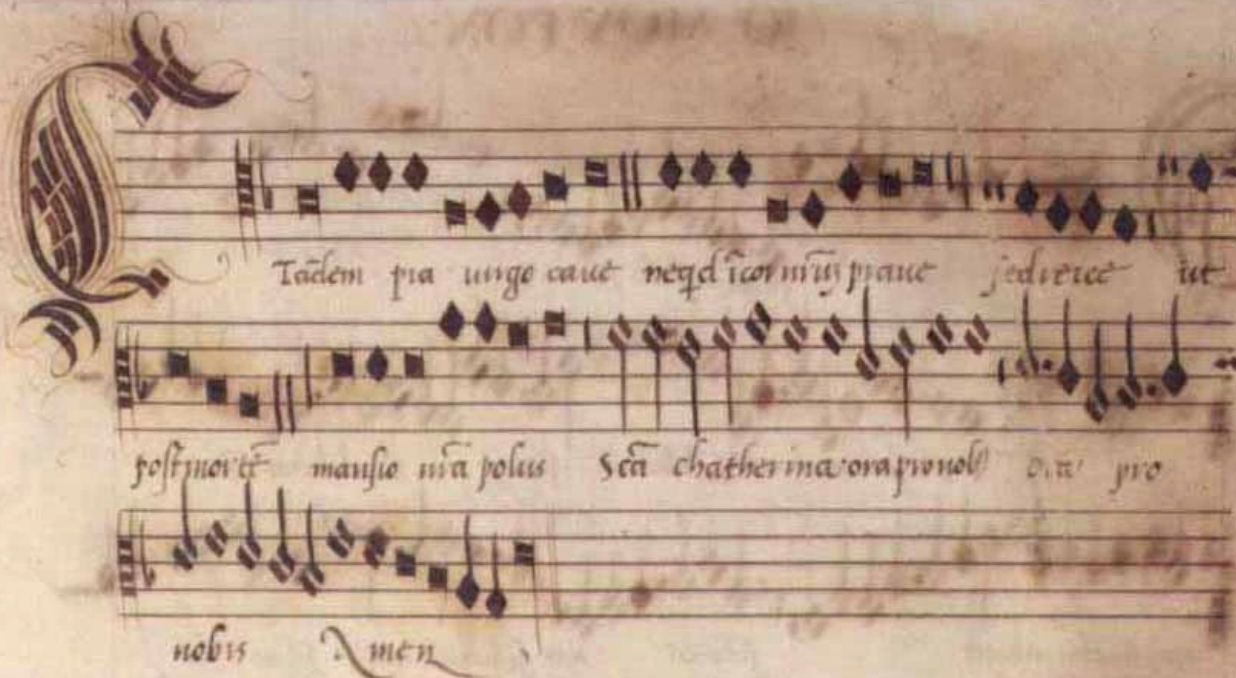 C
Tãdem pia uirgo caue neqd icor nrũ praue sed verce ut
post mortẽ mansio nrã polus Scã chatherina ora pro nob ora pro
nobis Amen